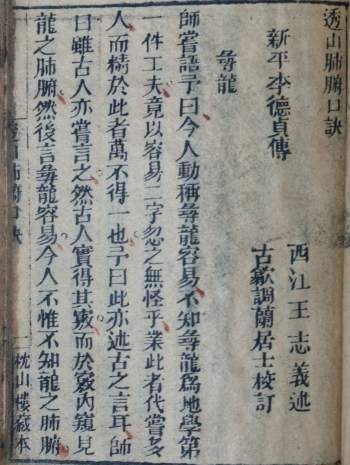 透山肺腑口訣
新平 李德貞傳
西江王志義述
古歙調蘭居士校訂
尋龍
師嘗語予曰今人動稱尋龍容易不知尋龍爲地學第
一件工夫竟以容易二字忽之無怪乎業此者代嘗多
人而精於此者萬不得一也予曰此亦述古之言耳師
曰雖古人亦嘗言之然古人實得其竅而於竅內窺見
龍之肺腑然後言尋龍容易今人不惟不知龍之肺腑
透山肺腑口訣
一 枕山樓藏本